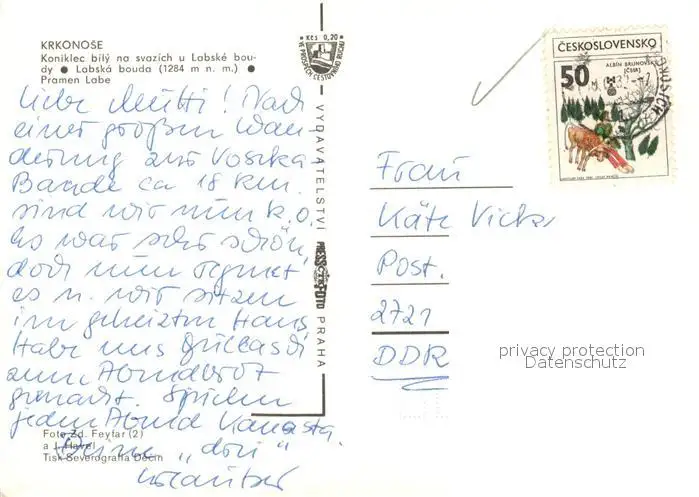 KRKONOŠE
Koniklec bílý na svazích u Labské bou-
dy ● Labská bouda (1284 m n. m.) ●
Pramen Labe
Liebe Mutti! Nach
einer großen Wan-
derung zur Vosecka
Baude ca 18 km.
sind wir nun k.o.
Es war sehr schön,
doch nun regnet
es u. wir sitzen
im geheizten Haus.
Habe uns
zum Abendbrot
gemacht. Spielen
jeden Abend Canasta.
Deine „dori“
Foto Zd. Feyfar (2)
a J. Havel
Tisk Severografia Děčín
Kčs 0,20
VE PROSPĚCH CESTOVNÍHO RUCHU
VYDAVATELSTVÍ PRESSFOTO PRAHA
ČESKOSLOVENSKO
ALBÍN BRUNOVSKÝ
(ČSSR)
50
Frau
Käte
Post.
2721
DDR
privacy protection
Datenschutz